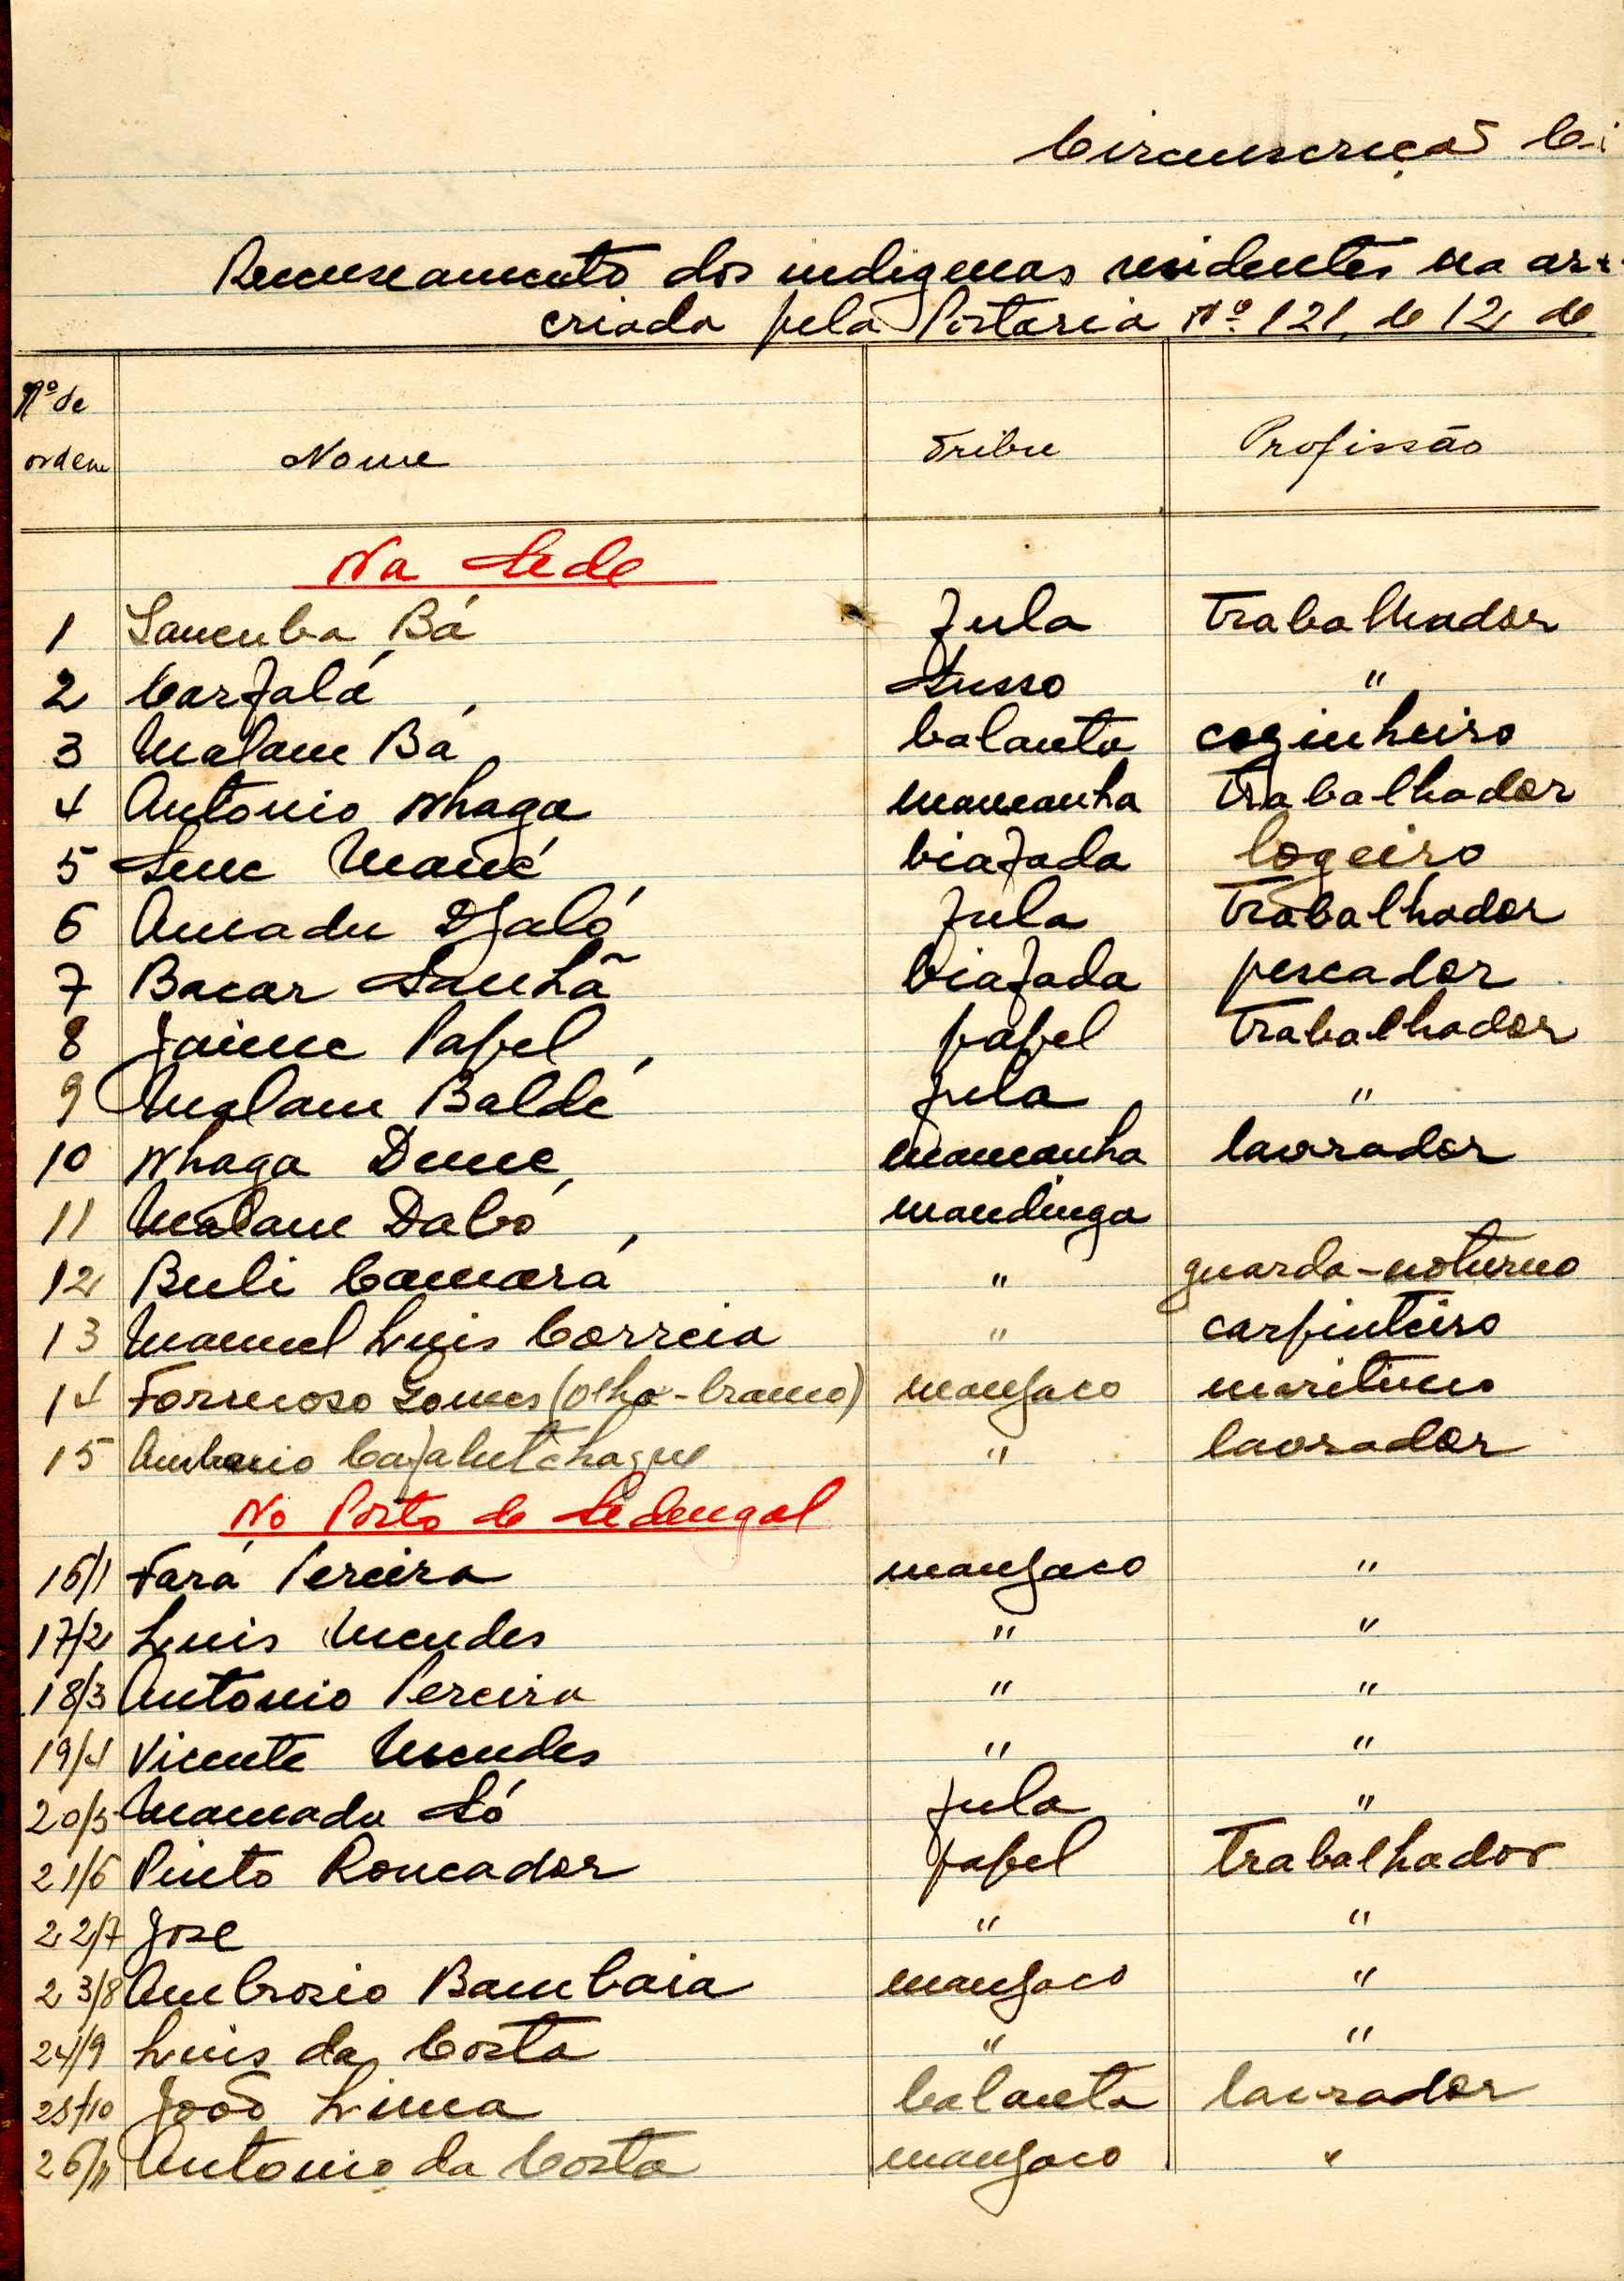 Circunscrição Ci
Recenseamento dos indigenas residentes na
criada pela Portaria Nº 121, de 12 de
Nº de ordem Nome Tribu Profissão
Na Sede
1 Sancuba Bá fula trabalhador
2 Carfalá Susso "
3 Malam Bá balanta cozinheiro
4 Antonio Nhaga mancanha trabalhador
5 Sene Mané biafada logeiro
6 Amadu Djaló fula trabalhador
7 Bacar Sanhã biafada pescador
8 Jaime Papel papel trabalhador
9 Malam Baldé fula "
10 Nhaga Deme mancanha lavrador
11 Malam Dabó mandinga
12 Buli Camará " guarda-noturno
13 Manuel Luis Correia " carpinteiro
14 Formoso Gomes (olho-branco) manjaco maritimo
15 " lavrador
No Posto de Sedengal
16/1 Fará Pereira manjaco "
17/2 Luis Mendes " "
18/3 Antonio Pereira " "
19/4 Vicente Mendes " "
20/5 Mamadu Só fula "
21/6 Pinto Roncador papel trabalhador
22/7 Jose " "
23/8 Ambrosio Bambaia manjaco "
24/9 Luis da Costa " "
25/10 João Lima balanta lavrador
26/11 Antonio da Costa manjaco "